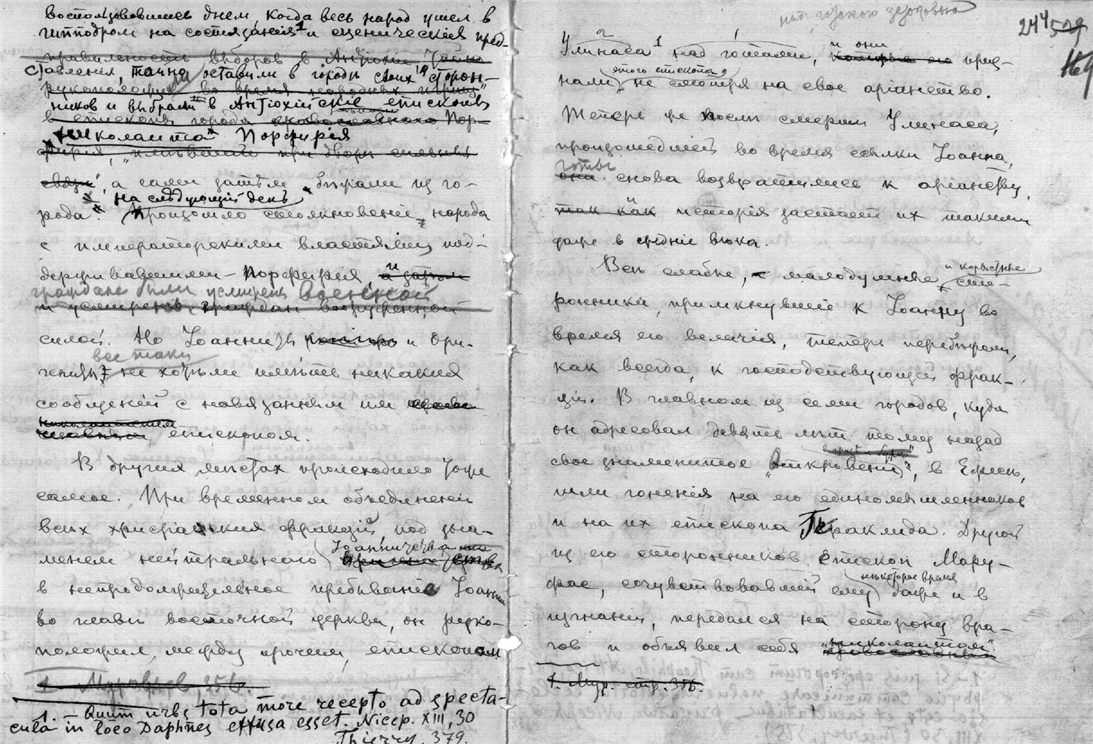 воспользовавшись днем, когда весь народ ушел в
гипподром на состязания¹ и сценическия пред-
ставления, тайно оставили в городе своих сторон-
ников и выбрали в Антиохийскіе епископы
„николаита“ Порфирія
а сами затѣм бѣжали из го-
рода. на слѣдующій день произошло столкновеніе народа
с императорскими властями, под-
держивавшими Порфирія и
граждане были усмирены военной
силой. Но Іоанниты и Ори-
гениты все таки не хотѣли имѣть никаких
сообщеній с навязанным им
епископом.
В других мѣстах происходило тоже
самое. При временном объединеніи
всѣх христіанских фракцій под зна-
менем нейтральнаго Іоанничества
в непродолжительное пребываніе Іоанна
во главѣ восточной церкви, он руко-
положил, между прочим, епископом
1. Муравьев, 356.
1. — Quum urbs tota more recepto ad specta-
cula in loco Daphnes effusa esset. Nicep. XIII, 30
Thierry, 379.
над готскою церковью
244
Улинаса¹ над готами, и они приз-
нали этого епископа, не смотря на свое аріанство.
Теперь же послѣ смерти Улинаса,
происшедшей во время ссылки Іоанна,
готы снова возвратились к аріанству,
так как исторія застает их такими
даже в средніе вѣка.
Всѣ слабые, малодушные и корыстные сто-
ронники, примкнувшіе к Іоанну во
время его величія, теперь перебѣжали,
как всегда, к господствующей фрак-
ціи. В главном из семи городов, куда
он адресовал девять лѣт тому назад
свое знаменитое „Откровеніе“, в Ефесѣ,
шли гоненія на его единомышленников
и на их епископа Гераклида. Другой
из его сторонников епископ Мару-
фас, сочувствовавшій ему нѣкоторое время даже и в
изгнаніи, передался на сторону вра-
гов и объявил себя „николаитом“
1. Мур. стр. 356.